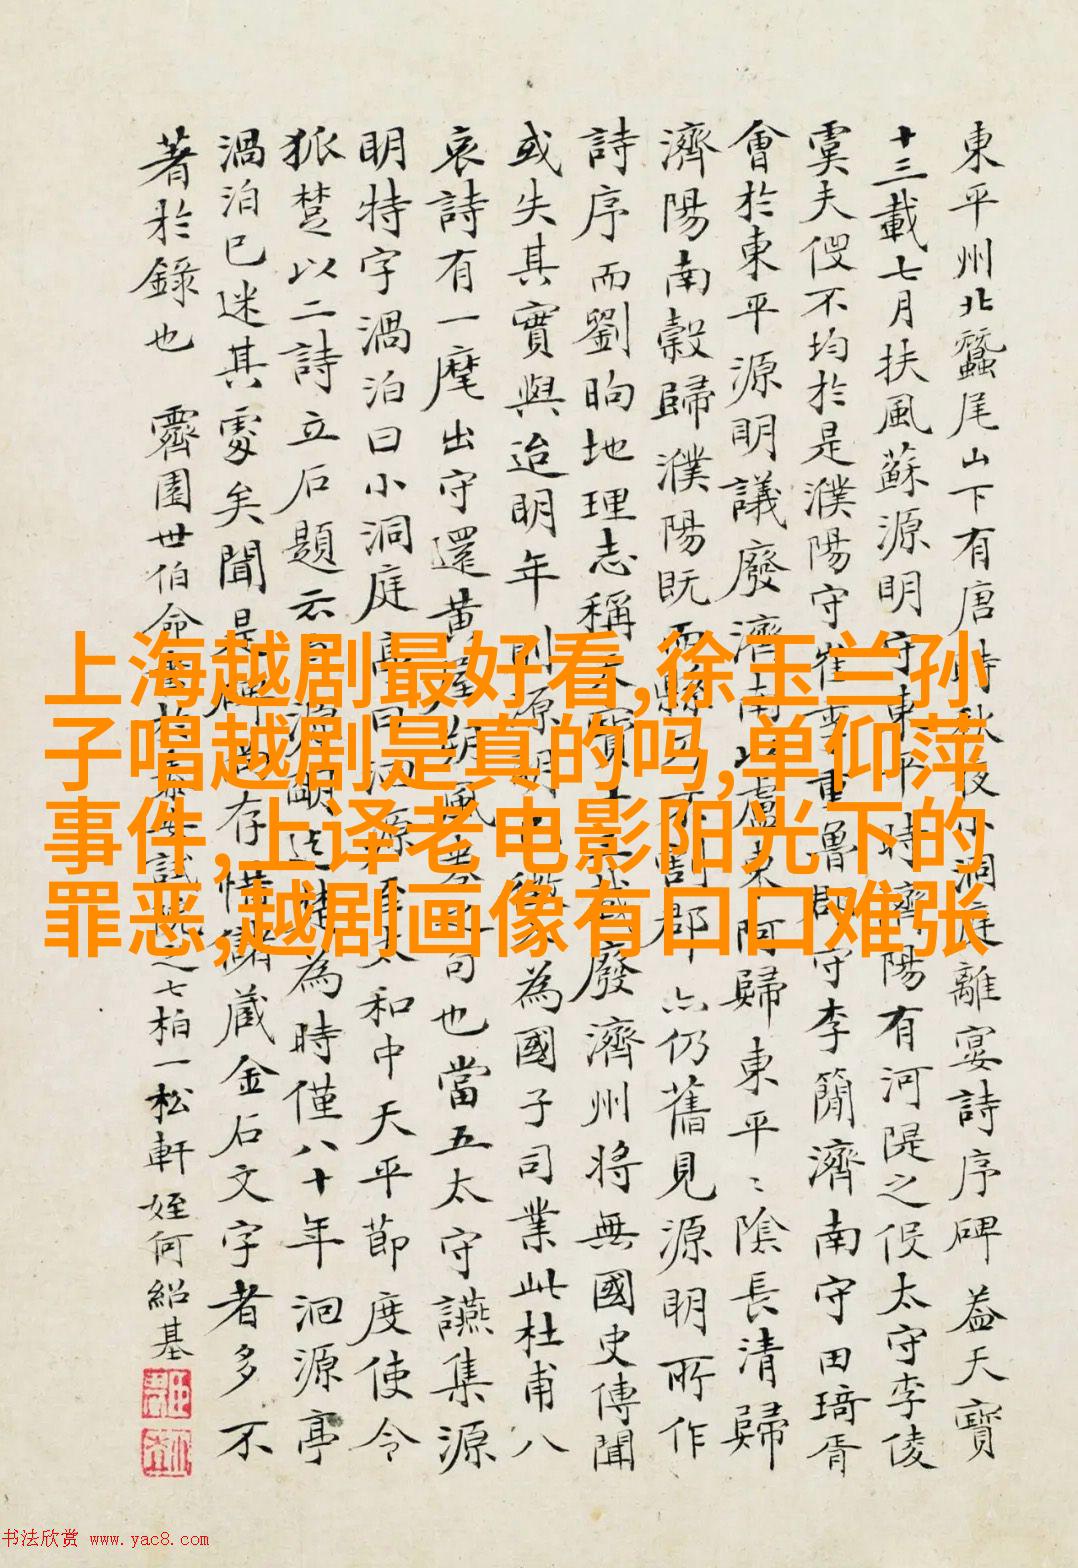 東平州北蠶尾山下有唐時秋夜小洞庭離宴詩序碑蓋天寶
十三載七月扶風蘇源明守東平時濟陽有河隄之役太守李倰
會於東平源明議廢濟南
濟陽南穀歸濮陽既而
詩序而劉昫地理志稱
或失其實與迨明年
哀詩有一麾出守還黄
明特字渦泊曰小洞庭
狐楚以二詩立石題云
渦泊已迷其處矣聞是
著於錄也 霽園世伯命
上海越剧最好看,徐玉兰孙
子唱越剧是真的吗,单仰萍
事件,上译老电影阳光下的
罪恶,越剧画像有口口难张
守李簡濟南守田琦胥
阿歸東平東平陰長清歸
仍舊見源明所作
廢濟州將無國史傳聞
為國子司業此杜甫八
句也當五太守讌集源
太和中天平節度使令
為時僅八十年洄源亭
藏金石文字者多不
七柏一松軒 姪何紹基
书法欣赏 www.yac8.com